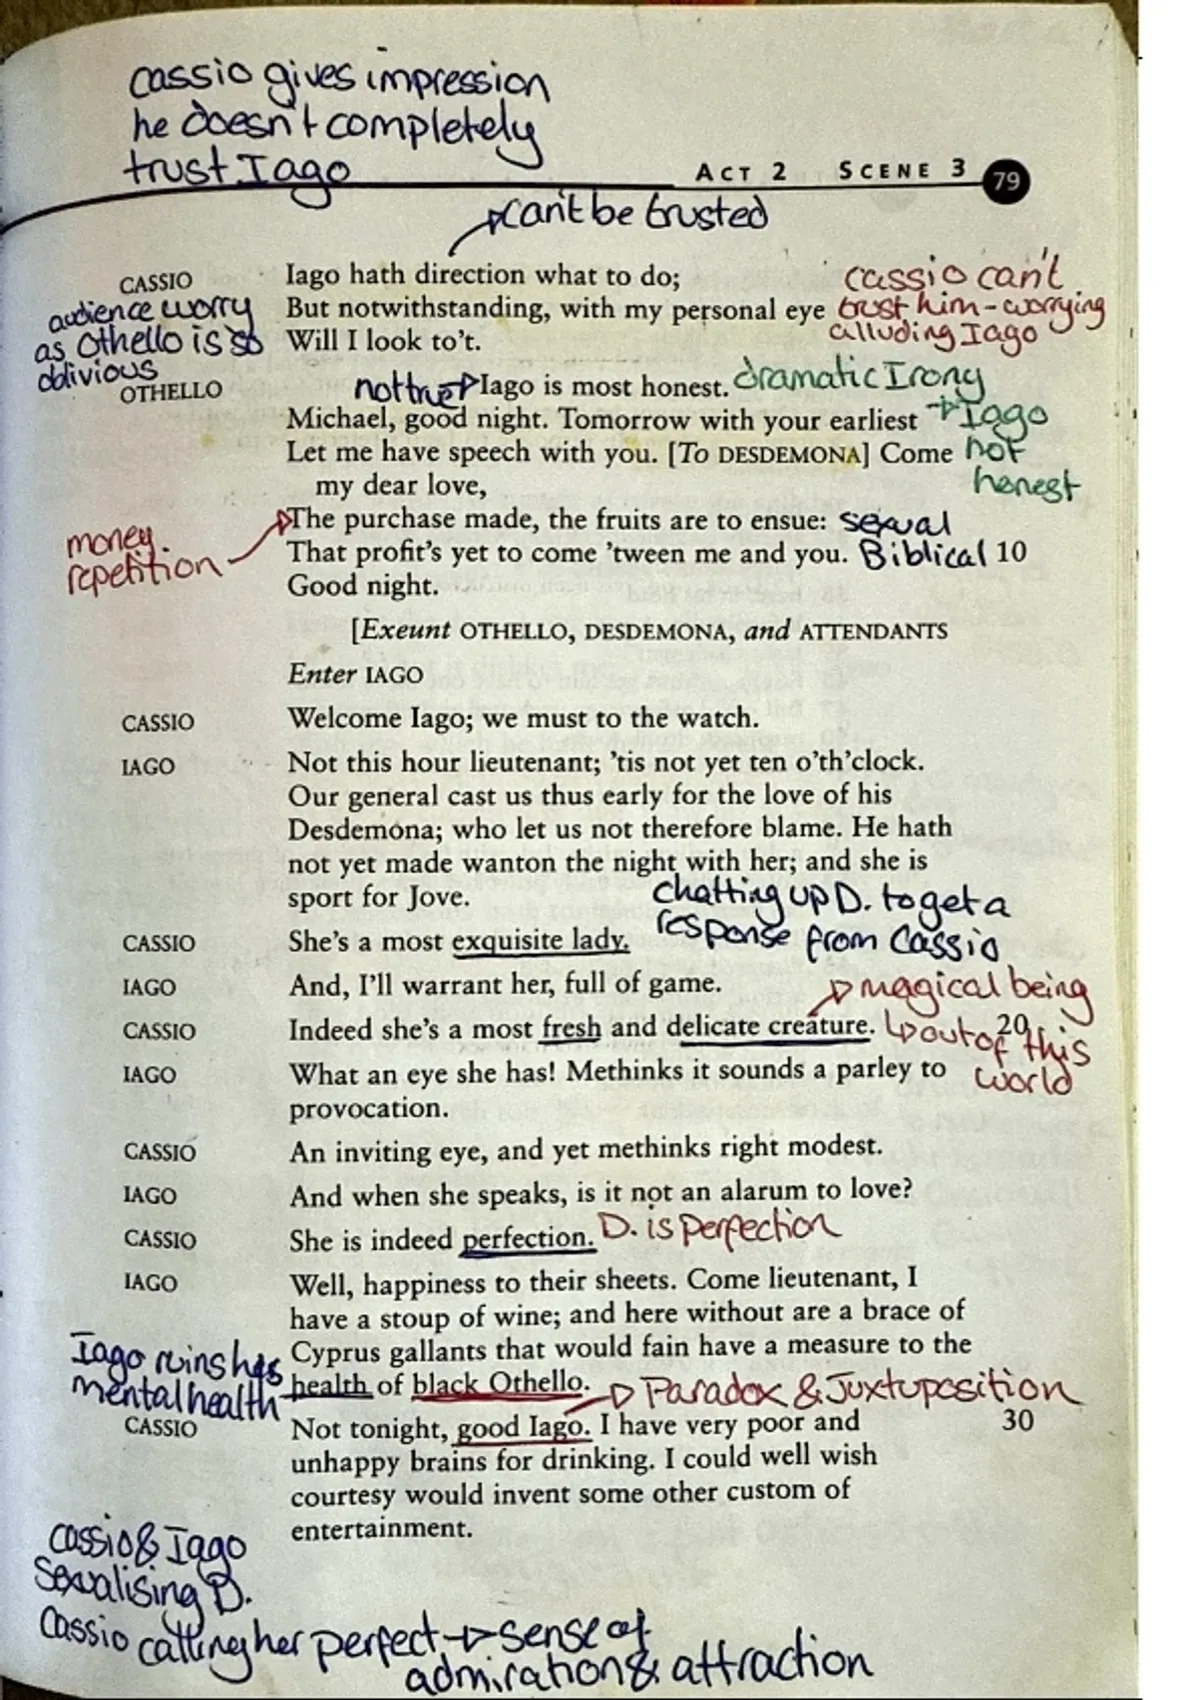 cassio gives impression
he doesn't completely
trust Iago
ACT 2 SCENE 3 79
can't be trusted
CASSIO Iago hath direction what to do;
But notwithstanding, with my personal eye
Will I look to't.
cassio can't
trust him - worrying
alluding Iago
audience worry
as Othello is so
oblivious
OTHELLO not true Iago is most honest. dramatic Irony
Michael, good night. Tomorrow with your earliest
Let me have speech with you. [To DESDEMONA] Come
my dear love,
Iago
not
honest
The purchase made, the fruits are to ensue: sexual
That profit's yet to come 'tween me and you. Biblical 10
Good night.
money
repetition
[Exeunt OTHELLO, DESDEMONA, and ATTENDANTS
Enter IAGO
CASSIO Welcome Iago; we must to the watch.
IAGO Not this hour lieutenant; 'tis not yet ten o'th'clock.
Our general cast us thus early for the love of his
Desdemona; who let us not therefore blame. He hath
not yet made wanton the night with her; and she is
sport for Jove.
chatting up D. to get a
response from Cassio
CASSIO She's a most exquisite lady.
IAGO And, I'll warrant her, full of game.
CASSIO Indeed she's a most fresh and delicate creature. 20
magical being
out of this
world
IAGO What an eye she has! Methinks it sounds a parley to
provocation.
CASSIO An inviting eye, and yet methinks right modest.
IAGO And when she speaks, is it not an alarum to love?
CASSIO She is indeed perfection. D. is perfection
IAGO Well, happiness to their sheets. Come lieutenant, I
have a stoup of wine; and here without are a brace of
Cyprus gallants that would fain have a measure to the
health of black Othello. Paradox & Juxtuposition
Iago ruins his
mental health
CASSIO Not tonight, good Iago. I have very poor and 30
unhappy brains for drinking. I could well wish
courtesy would invent some other custom of
entertainment.
cassio & Iago
sexualising D.
Cassio calling her perfect sense of
admiration & attraction